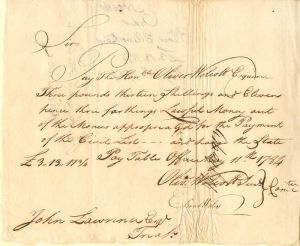 Sir
Pay the Honble Oliver Wolcott Esquire
Three pounds thirteen Shillings and Eleven
pence three farthings Lawful Money out
of the Monies appropriated for the Payment
of the Civil List and the State
£3.13.11¾ Pay Table Office 11th 1784
Olivr Wolcott Junr
John Lawrence Esqr
Treasr